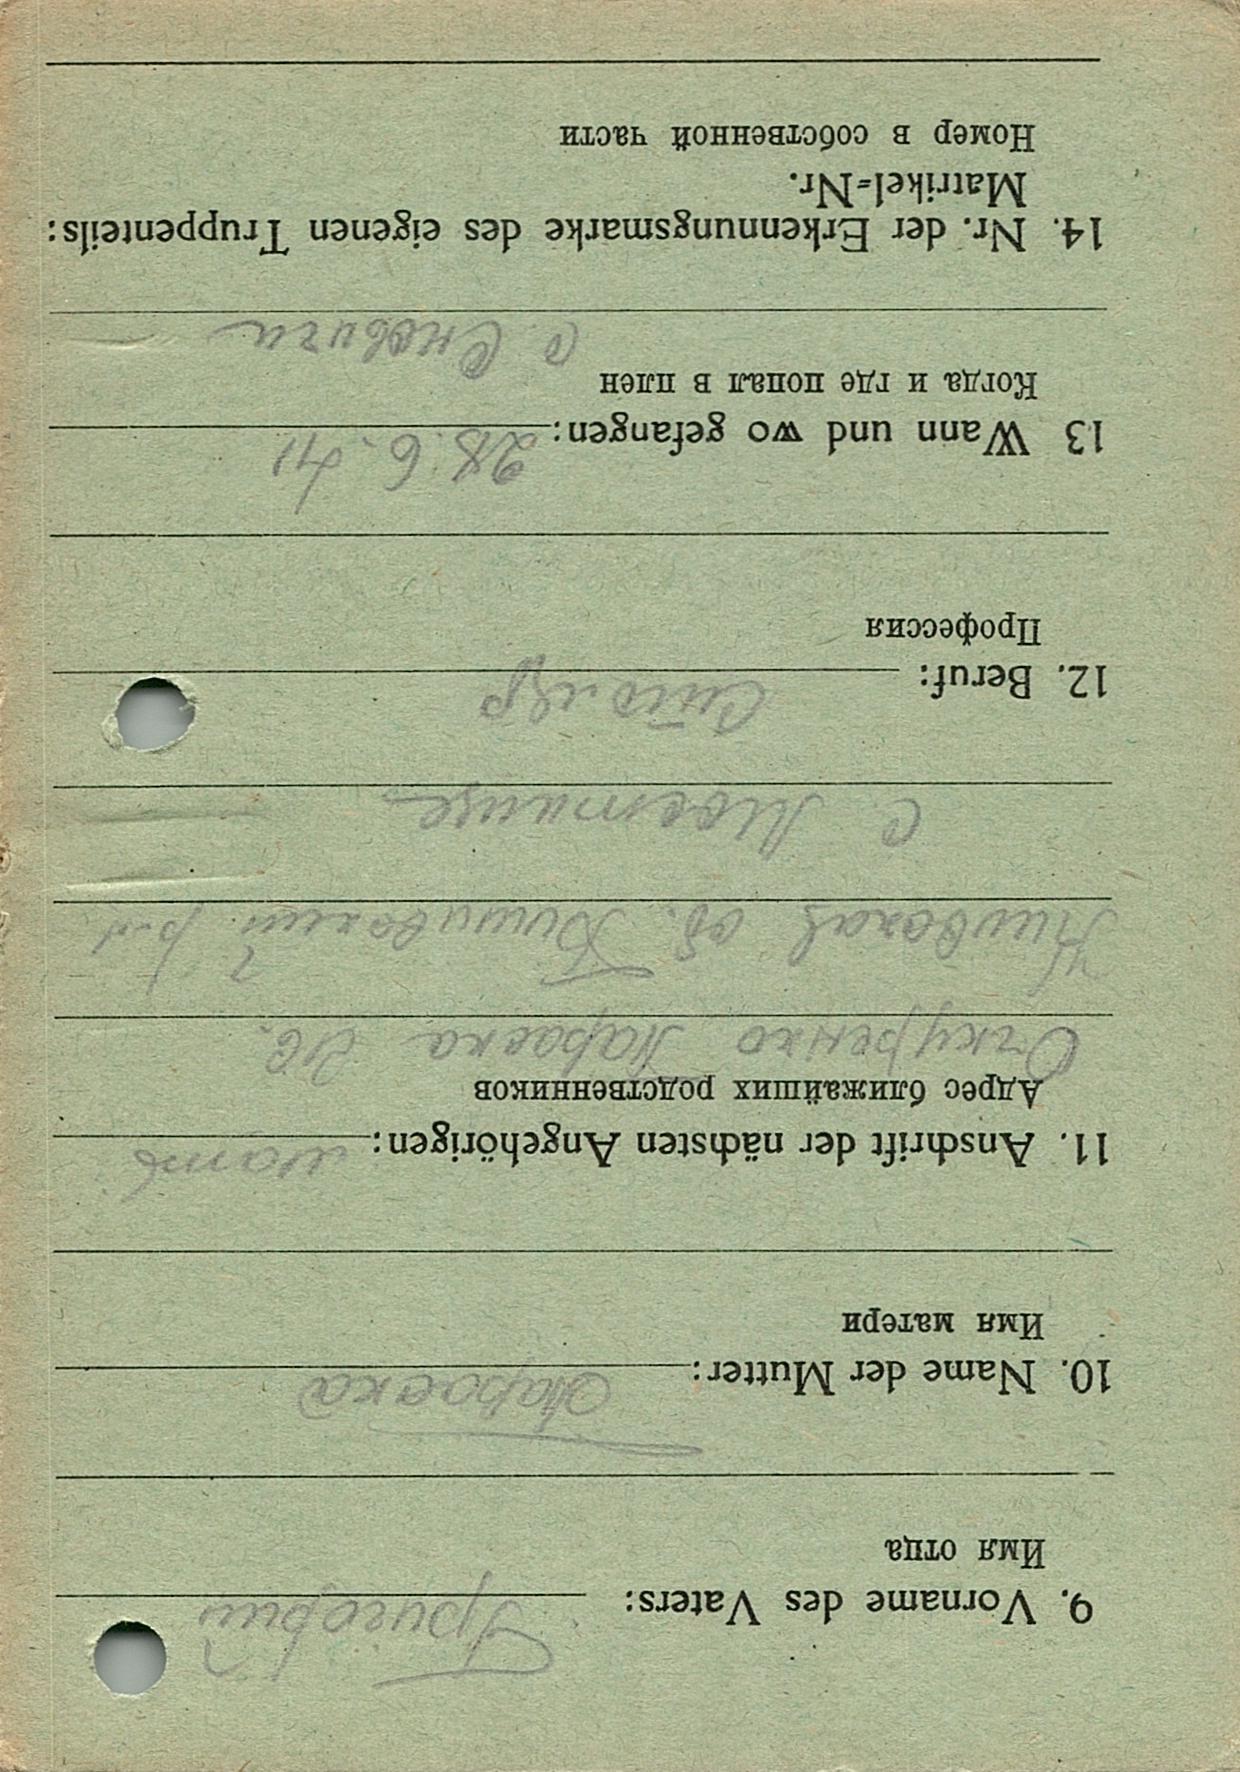 9. Vorname des Vaters: Григорий
Имя отца
10. Name der Mutter: Параска
Имя матери
11. Anschrift der nächsten Angehörigen: мать
Адрес ближайших родственников
Очкуренко Параска
об. р-н
с. Мостище
12. Beruf: столяр
Профессия
13 Wann und wo gefangen: 28. 6. 41
Когда и где попал в плен
с.
14. Nr. der Erkennungsmarke des eigenen Truppenteils:
Matrikel=Nr.
Номер в собственной части